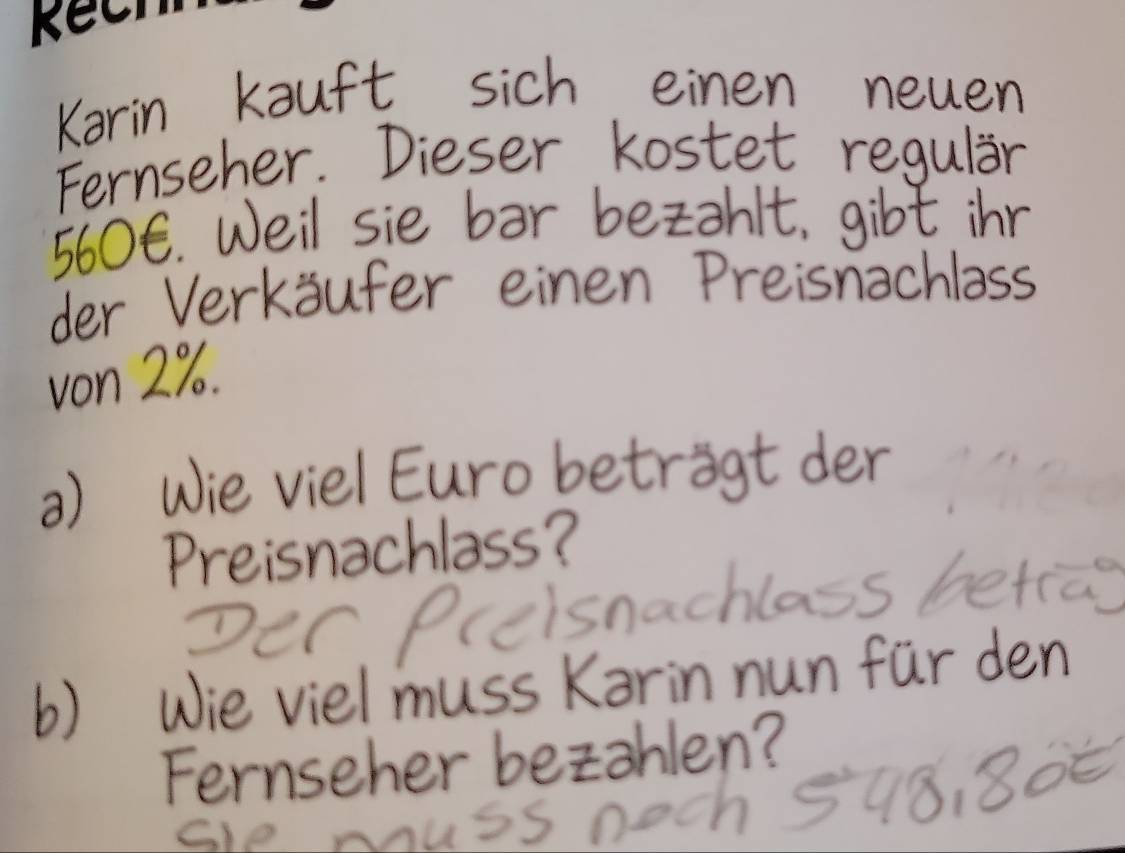 Karin kauft sich einen neuen
Fernseher. Dieser kostet regulär
560€. Weil sie bar bezahlt, gibt ihr
der Verkäufer einen Preisnachlass
von 2%.
a) Wie viel Euro beträgt der
Preisnachlass?
Der Preisnachlass beträg
b) Wie viel muss Karin nun für den
Fernseher bezahlen?
Sie muss noch 548,80€